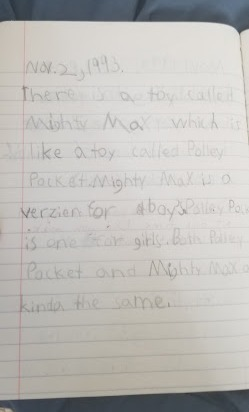 Nov. 2, 1993.
There is a toy called
Mighty Max which is
like a toy called Polley
Pocket. Mighty Max is a
verzien for boys Polley Pock
is one for girly. Both Polley
Pocket and Mighty Max a
kinda the same.